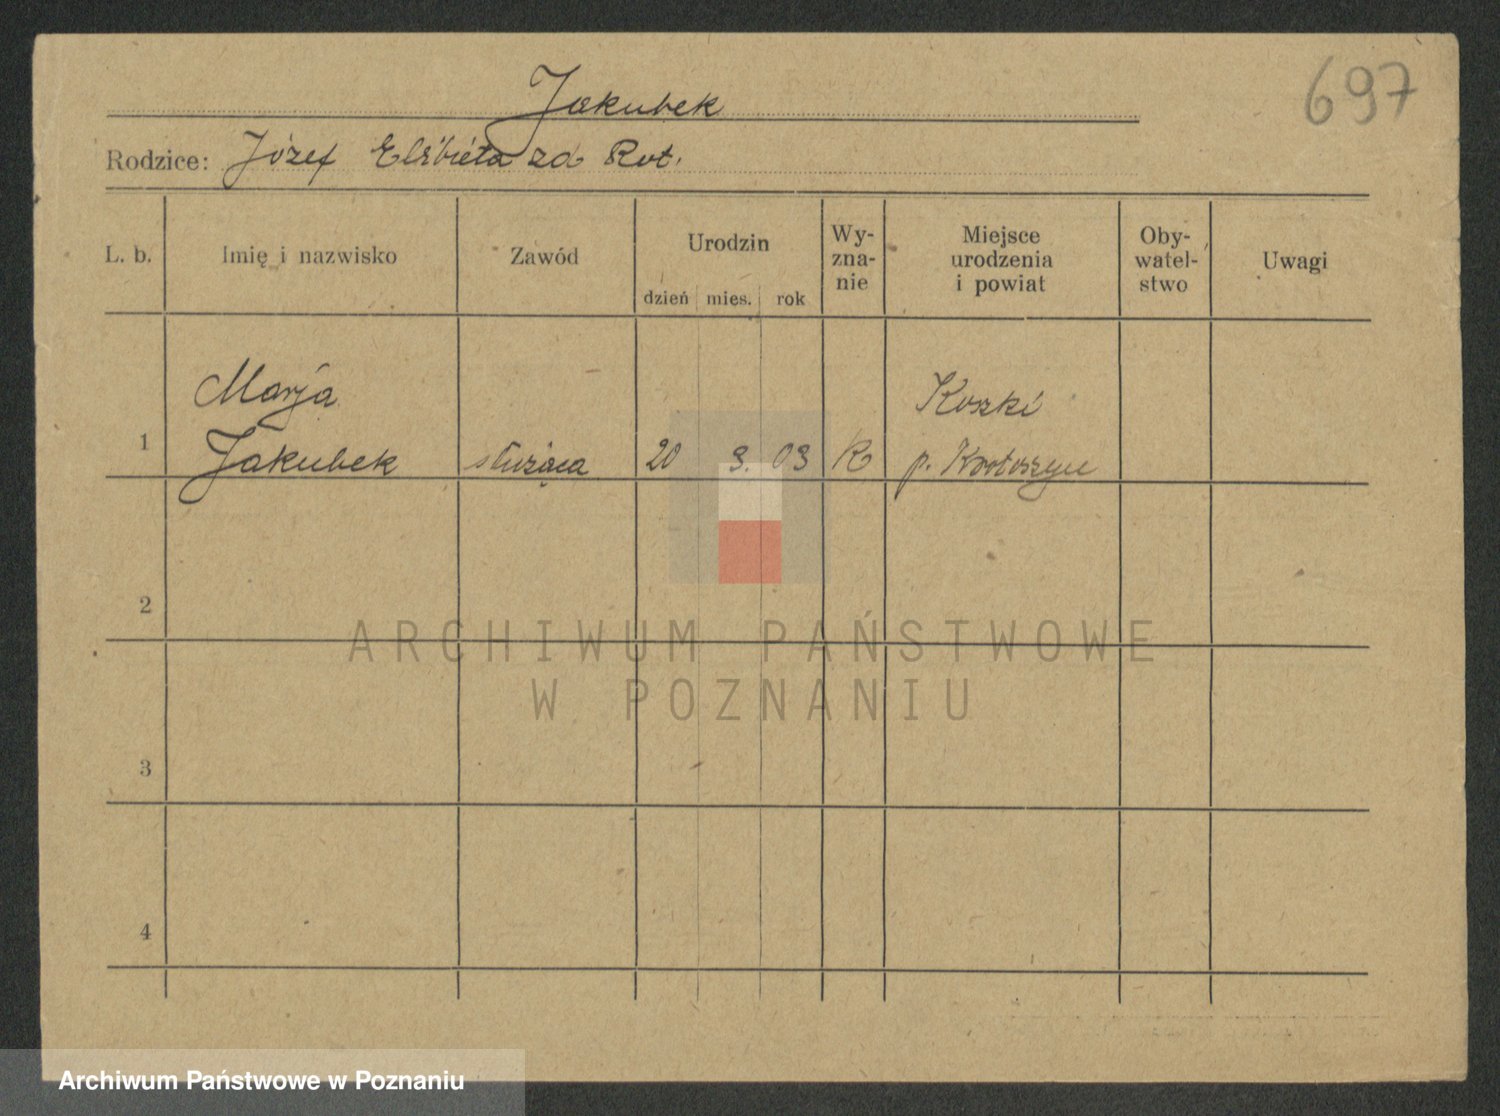 697
Jakubek
Rodzice: Józef Elżbieta zd Rot.
L. b. Imię i nazwisko Zawód Urodzin dzień mies. rok Wy-zna-nie Miejsce urodzenia i powiat Oby-watel-stwo Uwagi
Marja Koszki
1 Jakubek służąca 20 3. 03 R p. Krotoszyn
2
ARCHIWUM PAŃSTWOWE
W POZNANIU
3
4
Archiwum Państwowe w Poznaniu